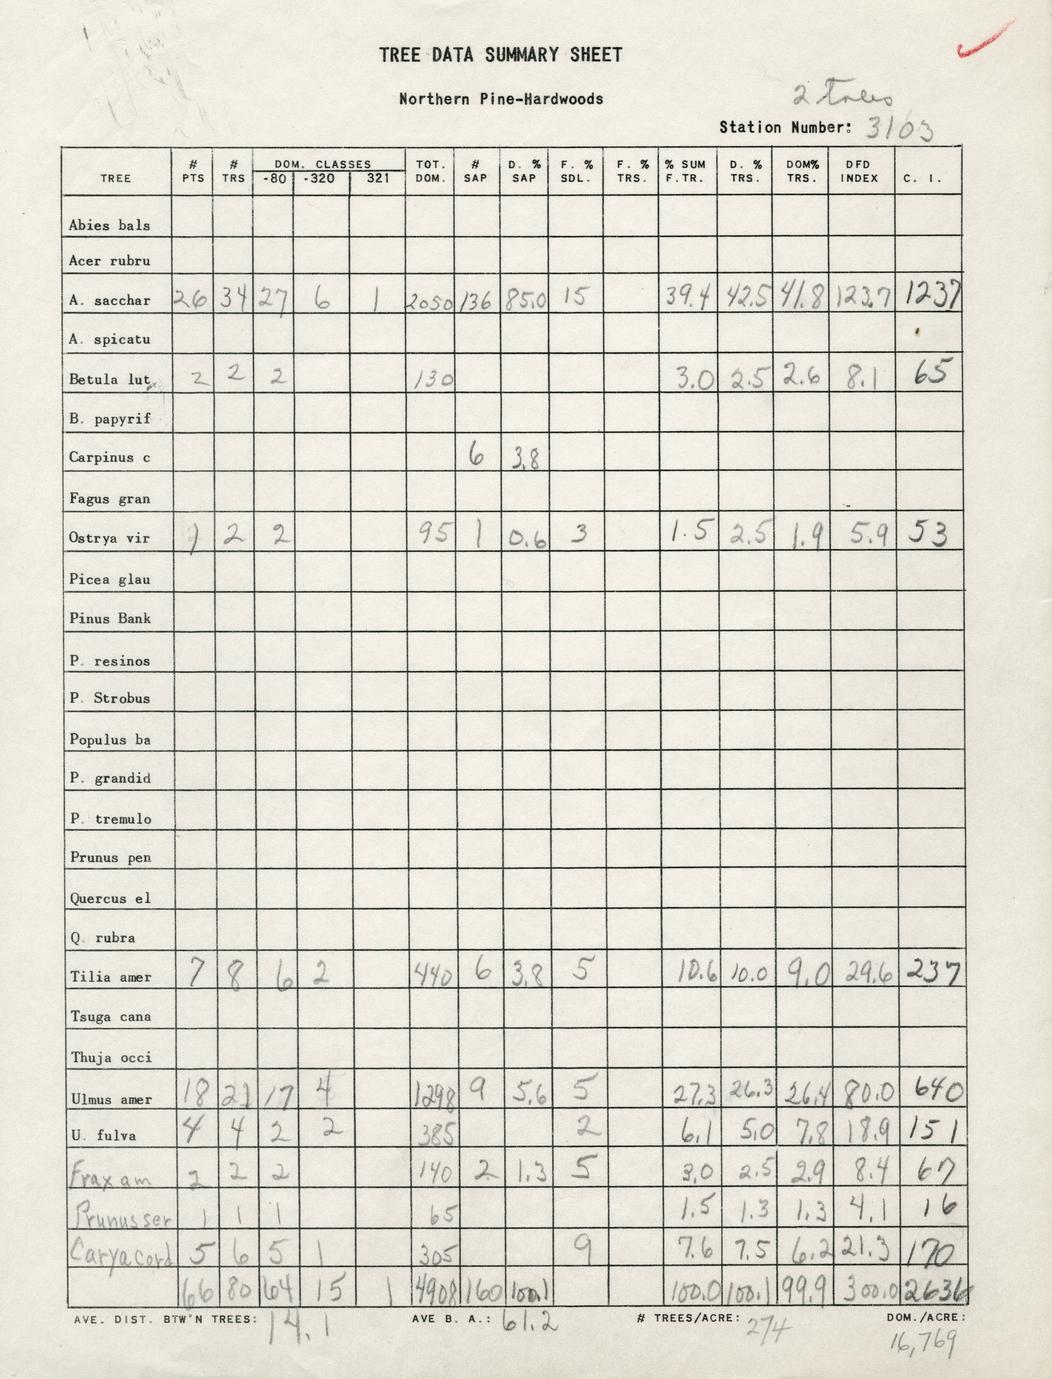 TREE DATA SUMMARY SHEET
Northern Pine-Hardwoods
2 trees
Station Number: 3103
TREE # PTS # TRS DOM. CLASSES -80 -320 321 TOT. DOM. # SAP D. % SAP F. % SDL. F. % TRS. % SUM F.TR. D. % TRS. DOM% TRS. DFD INDEX C. I.
Abies bals
Acer rubru
A. sacchar 26 34 27 6 1 2050 136 85.0 15 39.4 42.5 41.8 123.7 1237
A. spicatu
Betula lut 2 2 2 130 3.0 2.5 2.6 8.1 65
B. papyrif
Carpinus c 6 3.8
Fagus gran
Ostrya vir 1 2 2 95 1 0.6 3 1.5 2.5 1.9 5.9 53
Picea glau
Pinus Bank
P. resinos
P. Strobus
Populus ba
P. grandid
P. tremulo
Prunus pen
Quercus el
Q. rubra
Tilia amer 7 8 6 2 440 6 3.8 5 10.6 10.0 9.0 29.6 237
Tsuga cana
Thuja occi
Ulmus amer 18 21 17 4 1298 9 5.6 5 27.3 26.3 26.4 80.0 640
U. fulva 4 4 2 2 385 2 6.1 5.0 7.8 18.9 151
Frax am 2 2 2 140 2 1.3 5 3.0 2.5 2.9 8.4 67
Prunus ser 1 1 1 65 1.5 1.3 1.3 4.1 16
Carya cord 5 6 5 1 305 9 7.6 7.5 6.2 21.3 170
66 80 64 15 1 4908 160 100.1 100.0 100.1 99.9 300.0 2636
AVE. DIST. BTW'N TREES: 14.1 AVE B. A.: 61.2 # TREES/ACRE: 274 DOM./ACRE: 16,769